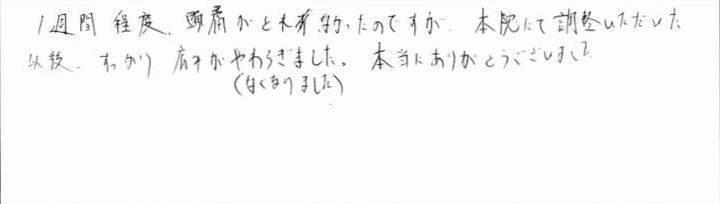 1週間程度、頭痛がとれず辛かったのですが、本院にて調整いただいた
以後、すっかり、痛みがやわらぎました。本当にありがとうございました
(なくなりました)